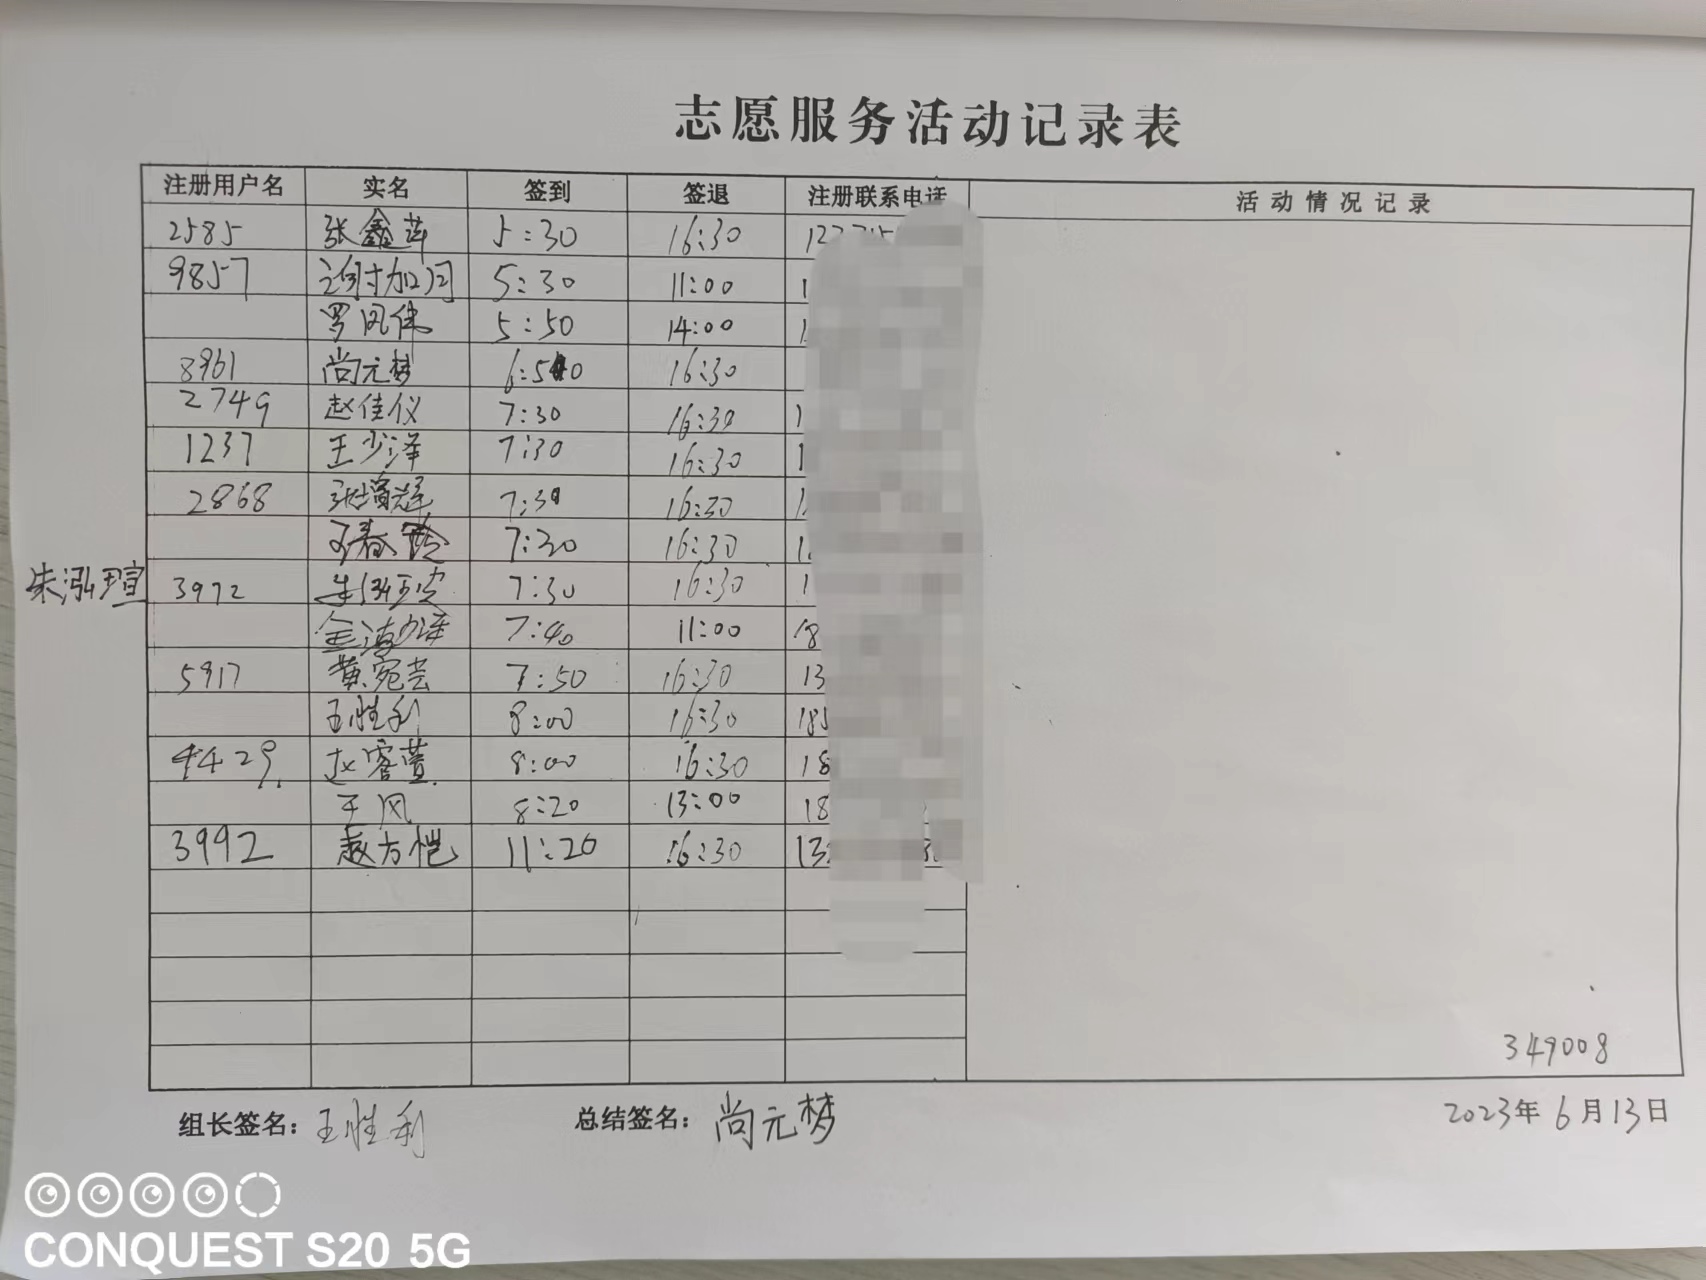 志愿服务活动记录表
注册用户名 实名 签到 签退 注册联系电话 活动情况记录
2585 张鑫萍 5:30 16:30
9857 5:30 11:00
罗凤伟 5:50 14:00
8961 尚元梦 6:50 16:30
2749 赵佳仪 7:30 16:30
1237 王少泽 7:30 16:30
2868 张增辉 7:30 16:30
王春玲 7:30 16:30
朱泓瑄 3972 7:30 16:30
7:40 11:00 18
5917 黄宛芸 7:50 16:30 13
王胜利 8:00 16:30 185
4429 赵容萱 8:00 16:30 18
王风 8:20 13:00 18
3992 赵方恺 11:20 16:30 13
349008
组长签名：王胜利 总结签名：尚元梦 2023年6月13日
CONQUEST S20 5G